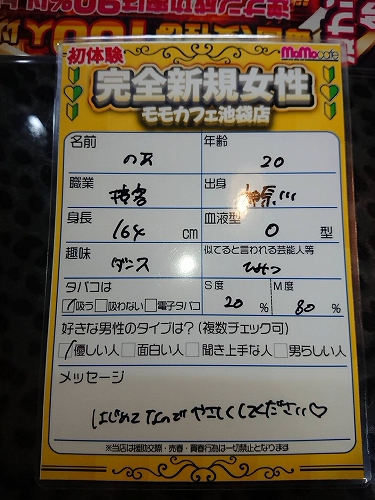 初体験
MoMocafe
完全新規女性
モモカフェ池袋店
名前 のあ
年齢 20
職業 接客
出身
身長 164 cm
血液型 O 型
趣味 ダンス
似てると言われる芸能人等 ひみつ
タバコは
吸う 吸わない 電子タバコ
S度 20 %
M度 80 %
好きな男性のタイプは?(複数チェック可)
優しい人 面白い人 聞き上手な人 男らしい人
メッセージ
はじめてなので やさしくしてください♡
※当店は援助交際・売春・買春行為は一切禁止となります